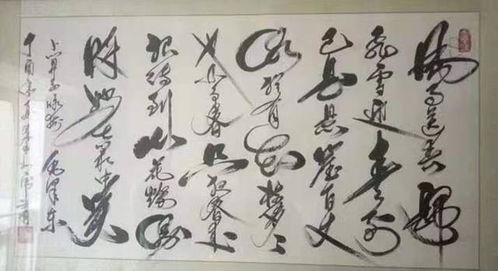 风雨送春归
飞雪迎春到
已是悬崖百丈
冰犹有花枝俏〻
也不争春只把春来
报待到山花烂漫
时她在丛中笑
卜算子咏梅 毛泽东
丁酉年